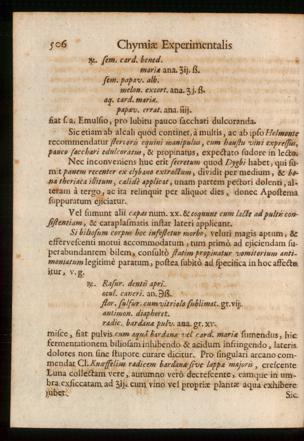 506 Chymiæ Experimentalis
℞. sem. card. bened.
mariæ ana. ʒij. ß.
sem. papav. alb.
melon. excort. ana. ʒj. ß.
aq. card. mariæ.
papav. errat. ana. ℥iij.
fiat s. a. Emulsio, pro lubitu pauco sacchari dulcoranda.
Sic etiam ab alcali quod continet, à multis, ac ab ipso Helmonte
recommendatur stercoris equini manipulus, cum haustu vini expressus,
pauco sacchari edulcoratus, & propinatus, expectato sudore in lecto.
Nec inconveniens huc erit secretum quod Dygbi habet, qui su-
mit panem recenter ex clybano extractum, dividit per medium, & bo-
na theriaca illitum, calidè applicat, unam partem pectori dolenti, al-
teram à tergo, ac ita relinquit per aliquot dies, donec Apostema
suppuratum ejiciatur.
Vel sumunt alii cepas num. xx. & coquunt cum lacte ad pultis con-
sistentiam, & cataplasmatis instar lateri applicant.
Si biliosum corpus hoc infestetur morbo, veluti magis aptum, &
effervescenti motui accommodatum, tum primò ad ejiciendam su-
perabundantem bilem, consultò statim propinatur vomitorium anti-
moniatum legitimè paratum, postea subitò ad specifica in hoc affectu
itur, v. g.
℞. Rasur. dentis apri.
ocul. cancri. an. ℈ß.
flor. sulfur. cum vitriolo sublimat. gr. vij.
antimon. diaphoret.
radic. bardanæ pulv. ana. gr. xv.
misce, fiat pulvis cum aqua bardanæ vel card. mariæ sumendus, hic
fermentationem biliosam inhibendo & acidum infringendo, lateris
dolores non sine stupore curare dicitur. Pro singulari arcano com-
mendat Cl. Knœffelius radicem bardanæ sive lappæ majoris, crescente
Luna collectam vere, autumno verò decrescente, eamque in um-
bra exsiccatam ad ʒij. cum vino vel propriæ plantæ aqua exhibere
jubet.
Sic